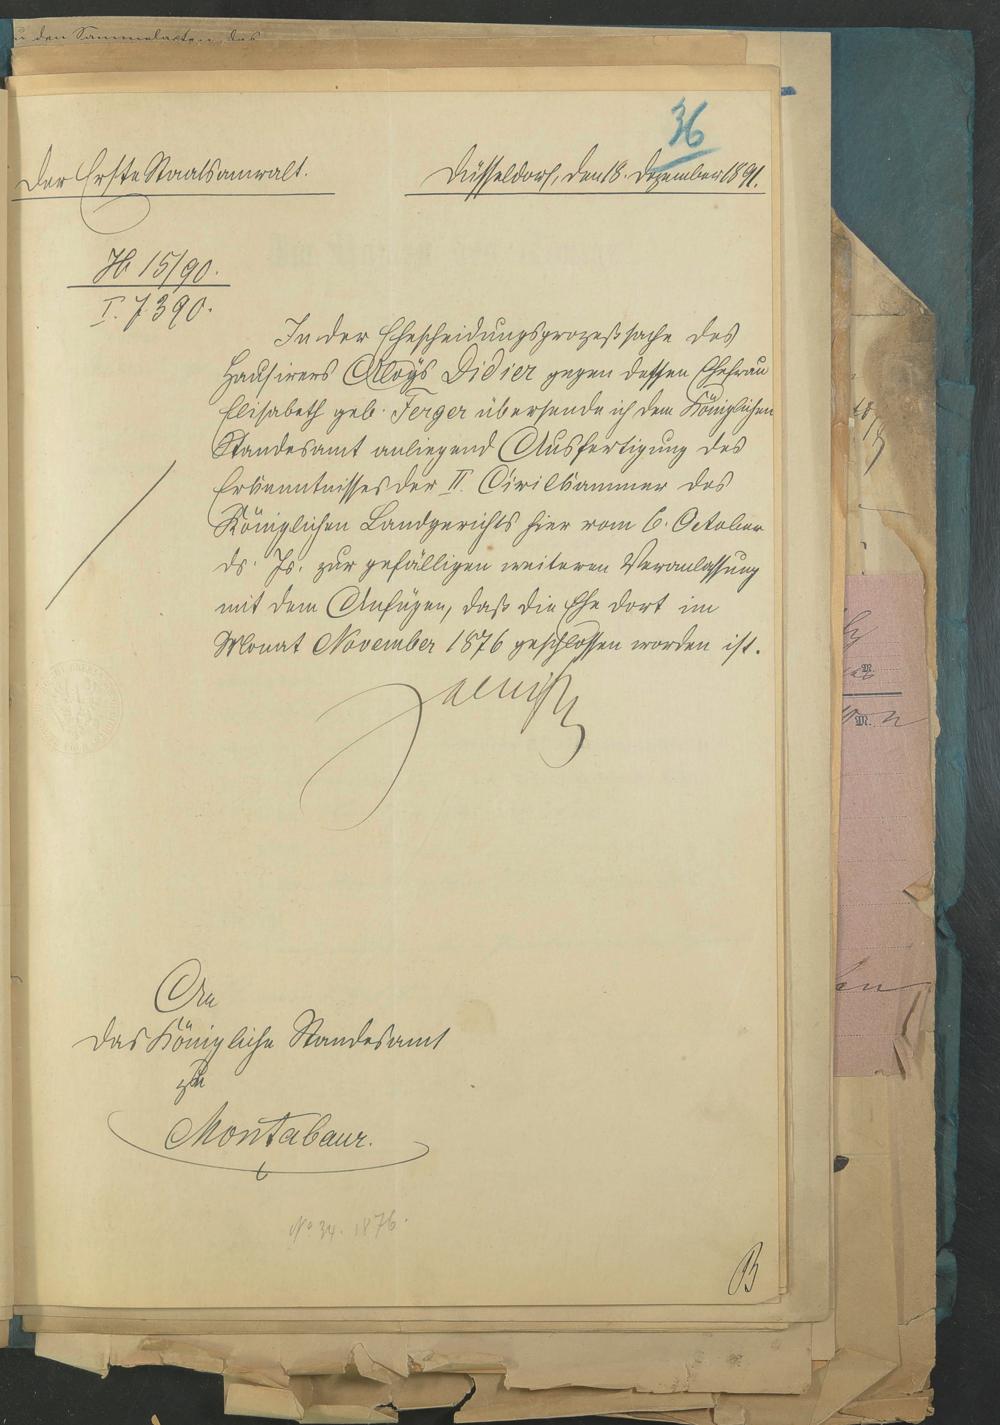 zu den Sammelakten des
36
Der Erste Staatsanwalt.
Düsseldorf, den 18. Dezember 1891.
I. 7390.
15/90.
In der Ehescheidungsprozeßsache des
Hausirers Aloys Didier gegen dessen Ehefrau
Elisabeth geb. Ferger übersende ich dem Königlichen
Standesamt anliegend Ausfertigung des
Erkenntnisses der II. Civilkammer des
Königlichen Landgerichts hier vom 6. October
ds. Js. zur gefälligen weiteren Veranlassung
mit dem Anfügen, daß die Ehe dort im
Monat November 1876 geschlossen worden ist.
An
das Königliche Standesamt
zu
Montabaur.
No 34. 1876.
B